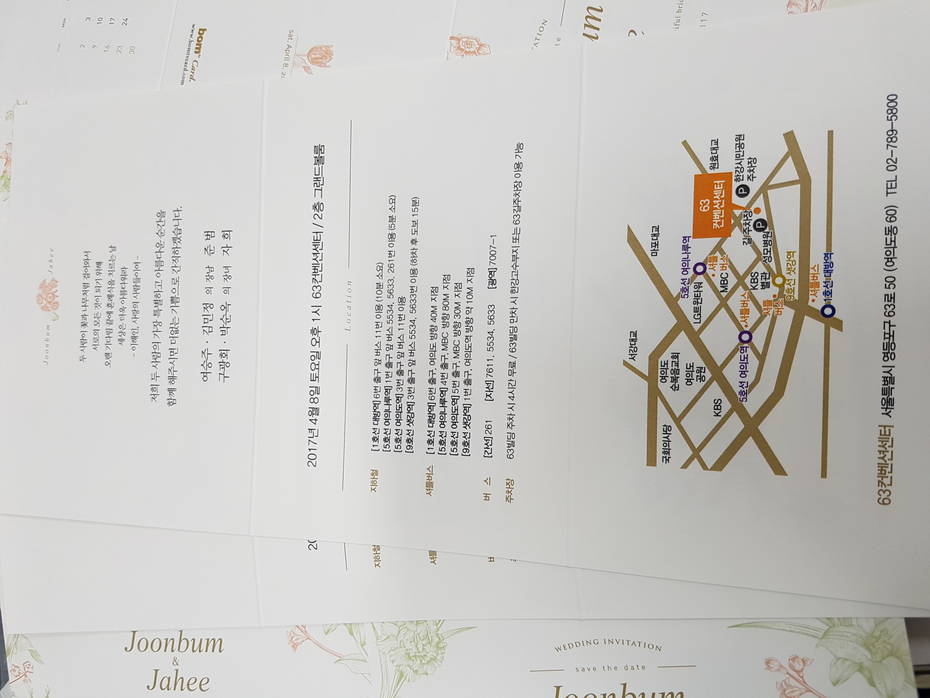 Joonbum & Jahee
두 사람이 꽃과 나무처럼 걸어와서
서로의 모든 것이 되기 위해
오랜 기다림 끝에 혼례식을 치르는 날
세상은 더욱 아름다워라
- 이해인, 사랑의 사람들이여 -
저희 두 사람의 가장 특별하고 아름다운 순간을
함께 해주시면 더없는 기쁨으로 간직하겠습니다.
여승주 · 김민정 의 장남 준 범
구광회 · 박순옥 의 장녀 자 희
2017년 4월 8일 토요일 오후 1시 63컨벤션센터 / 2층 그랜드볼룸
Location
지하철 [1호선 대방역] 6번 출구 앞 버스 11번 이용 (10분 소요)
[5호선 여의나루역] 1번 출구 앞 버스 5534, 5633, 261번 이용 (5분 소요)
[5호선 여의도역] 3번 출구 앞 버스 11번 이용
[9호선 샛강역] 3번 출구 앞 버스 5534, 5633번 이용 (하차 후 도보 15분)
셔틀버스 [1호선 대방역] 6번 출구, 여의도 방향 40M 지점
[5호선 여의나루역] 4번 출구, MBC 방향 80M 지점
[5호선 여의도역] 5번 출구, MBC 방향 30M 지점
[9호선 샛강역] 1번 출구, 여의도역 방향 약 10M 지점
버 스 [간선] 261 [지선] 7611, 5534, 5633 [광역] 7007-1
주차장 63빌딩 주차 시 4시간 무료 / 63빌딩 만차 시 한강고수부지 또는 63길주차장 이용 가능
서강대교
마포대교
원효대교
국회의사당
여의도
순복음교회
여의도
공원
KBS
5호선 여의나루역
LG트윈타워
셔틀
버스
MBC
63
컨벤션센터
P
한강시민공원
주차장
길주차장
P
성모병원
KBS
별관
5호선 여의도역
셔틀버스
셔틀
버스
9호선 샛강역
셔틀버스
1호선 대방역
63컨벤션센터 서울특별시 영등포구 63로 50 (여의도동 60) TEL 02-789-5800
지하철
버
주차장
Joonbum
&
Jahee
WEDDING INVITATION
save the date
Joonbum
bom Card.
www.bomcard.com
3 10 17 24
2 9 16 23 30